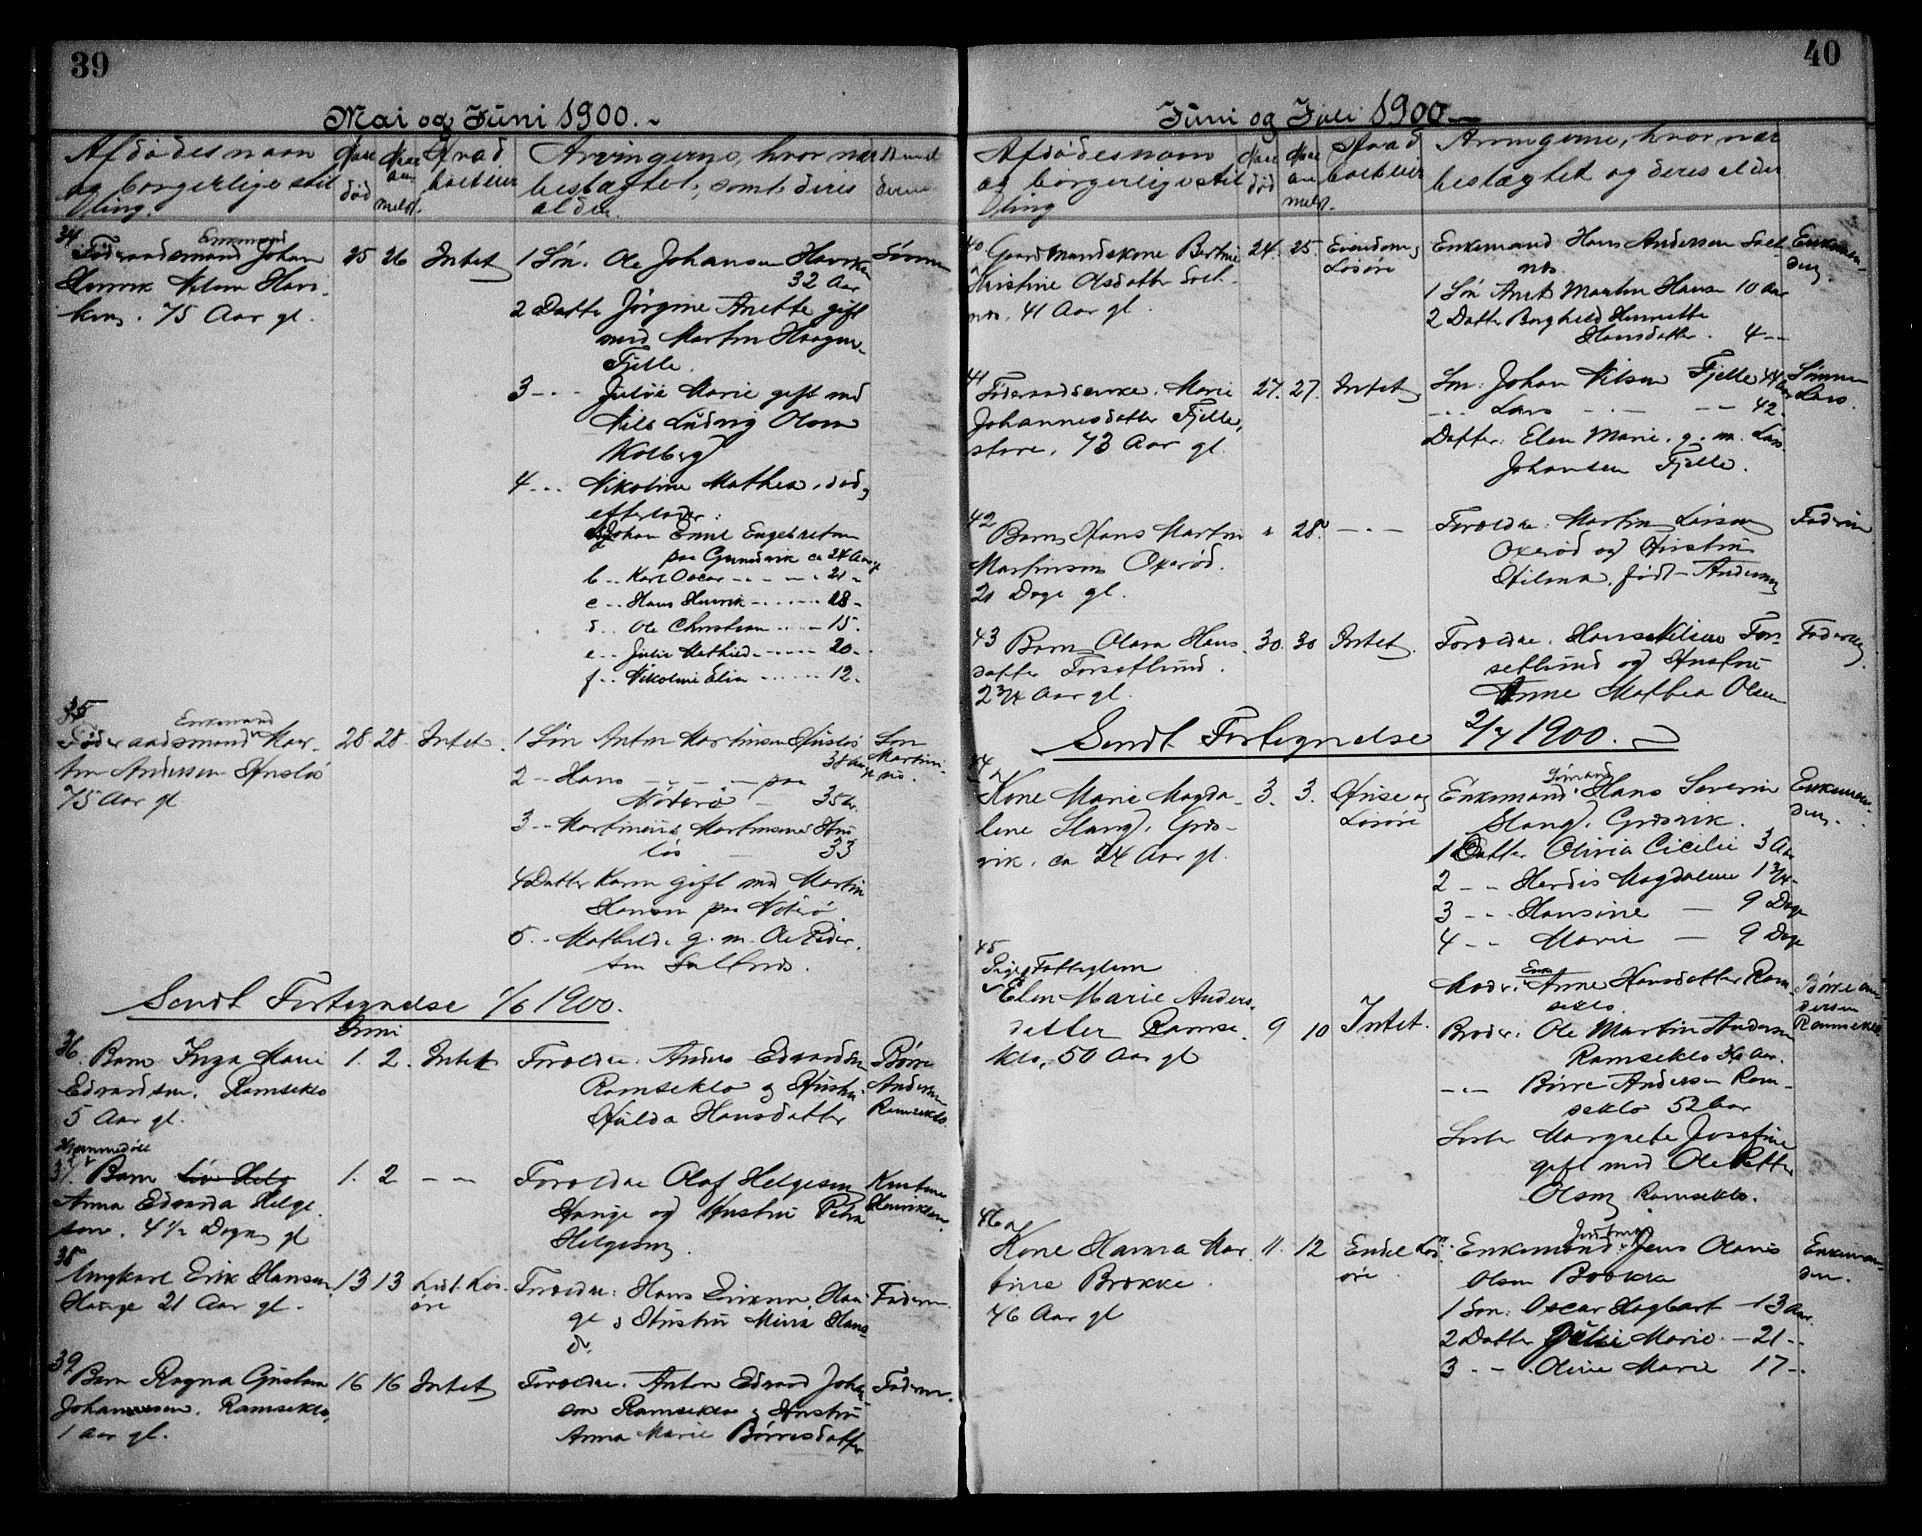 39
Mai og Juni 1900.
Afdødes navn
og borgerlige stil
ling.
Naar
død
Naar
an
meldt.
Hvad
boet eier
Arvingerne, hvor nær
beslægtet, samt deres
alder.
34 Enkemand
Føderaadsmand Johan
Henrik Nilsen Hav-
. 75 Aar gl.
25 26 Intet
1 Søn. Ole Johansen
32 Aar
2 Datter Jørgine Anette gift
med Martin Haagen
Fjelle.
3 - - Julie Marie gift med
Nils Ludvig Olsen
Kolberg
4 - - Nikoline Mathea, død,
efterlader:
a Johan Emil Engebretsen
paa Gunnarvik ca 24 Aar gl
b - - Karl Oscar - - - - 21 -
c - - Hans Henrik - - - - 18 -
d - - Ole Christian - - - 15.
e - - Julie Mathild - - - 20 -
f - - Nikoline Elia - - - 12 -
Sønnen
35 Enkemand
Føderaadsmand Mar-
tin Andersen Husløs
75 Aar gl
28 28 Intet
1 Søn Anton Martinsen Husløs
38 Aar gl
2 - - Hans - - - paa
Nøterø - 35 Aar.
3 - - Martinius Martinsen Hus
løs - 33
4 Datter Karen gift med Martin
Hansen paa Nøterø
5 - - Mathilde g. m. Ole Peder-
sen
Søn
Martini-
us.
Sendt Fortegnelse 1/6 1900.
Juni
36 Barn Inga Marie
Edvardsen. Ramseklo
5 Aar gl.
1. 2. Intet
Forældre: Anders Edvardsen
Ramseklo og Hustru
Hulda Hansdatter
Børre
Andersen
Ramseklo.
Hjemmedøbt
37. Barn
Anna Edvarda Helge
sen. 4 1/2 Døgn gl
1. 2 - -
Forældre Olaf Helgesen
Hauge og Hustru Petra
Helgesen.
Kristine
Henriksen.
38
Ungkarl Erik Hansen
Hauge 21 Aar gl.
13 13 Lidt Løs-
øre
Forældre: Hans Eriksen Hau-
ge og Hustru Mina Hans
dr.
Faderen.
39
Barn Ragna Gustava
Johannesen. Ramseklo,
1 aar gl.
16 16 Intet
Forældre. Anton Edvard Johan
sen Ramseklo og Hustru
Anna Marie Børresdatter
Faderen.
40
Juni og Juli 1900.
Afdødes navn
og borgerlige stil
ling
Naar
død
Naar
an
meldt.
Hvad
boet eier
Arvingerne, hvor nær
beslægtet og deres alder
40 Gaardmandskone Bertine
Kristine Olsdatter Solt-
nes. 41 Aar gl.
24. 25. Eiendom og
Løsøre
Enkemand Hans Andersen Solt
nes.
1 Søn Anet Martin Hansen 10 Aar
2 Datter Borghild Henriette
Hansdatter. 4 - -
Enkeman-
den.
41
Føderaadsenke. Marie
Johannesdatter Fjelle,
store. 73 Aar gl.
27. 27. Intet
Søn: Johan Nilsen Fjelle 44 Aar
- - - Lars - - - - 42.
Datter: Elen Marie. g. m. Lars
Johansen Fjelle.
Sønnen
Lars.
42
Barn Hans Martin
Martinsen Oxerød.
21 Dage gl.
" 28. - - -
Forældre: Martin Larsen
Oxerød og Hustru
Hilma, født Andersen
Faderen
43 Barn Olava Hans
datter Forsetlund.
2 3/4 Aar gl.
30. 30 Intet.
Forældre. Hans Nilsen For-
setlund og Hustru
Anne Mathea Olsen
Faderen
Sendt Fortegnelse 2/7 1900.
44
Kone Marie Magda-
lene Stang. Græs-
vik. ca 24 Aar gl.
3. 3. Huse og
Løsøre
Sømand
Enkemand Hans Severin
Stang. Græsvik.
1 Datter Olivia Cicilie 3 Aar
2 - - Herdis Magdalene 1 3/4 -
3 - - Hansine - 9 Dage
4 - - Marie - 9 Dage
Enkeman-
den.
45
Pige Fattiglem
Elen Marie Anders
datter Ramse
klo. 50 Aar gl
9 10 Intet.
Moder. Enke Anne Hansdatter Ram-
seklo.
Broder. Ole Martin Andersen
Ramseklo 36 Aar.
- - - Børre Andersen Ram-
seklo 52 Aar
Søster Margrete Josefine
gift med Ole Petter
Olsen Ramseklo.
Børre An
dersen
Ramseklo
46
Kone Hanna Mar
tine Brække.
46 Aar gl
11. 12 Endel Løs
øre
Enkemand Jens Olaus
Olsen Brække
1 Søn: Oscar Hagbart - 13 Aar.
2 Datter Julie Marie. - 21 - -
3 - - Oline Marie 17 - .
Enkeman-
den.